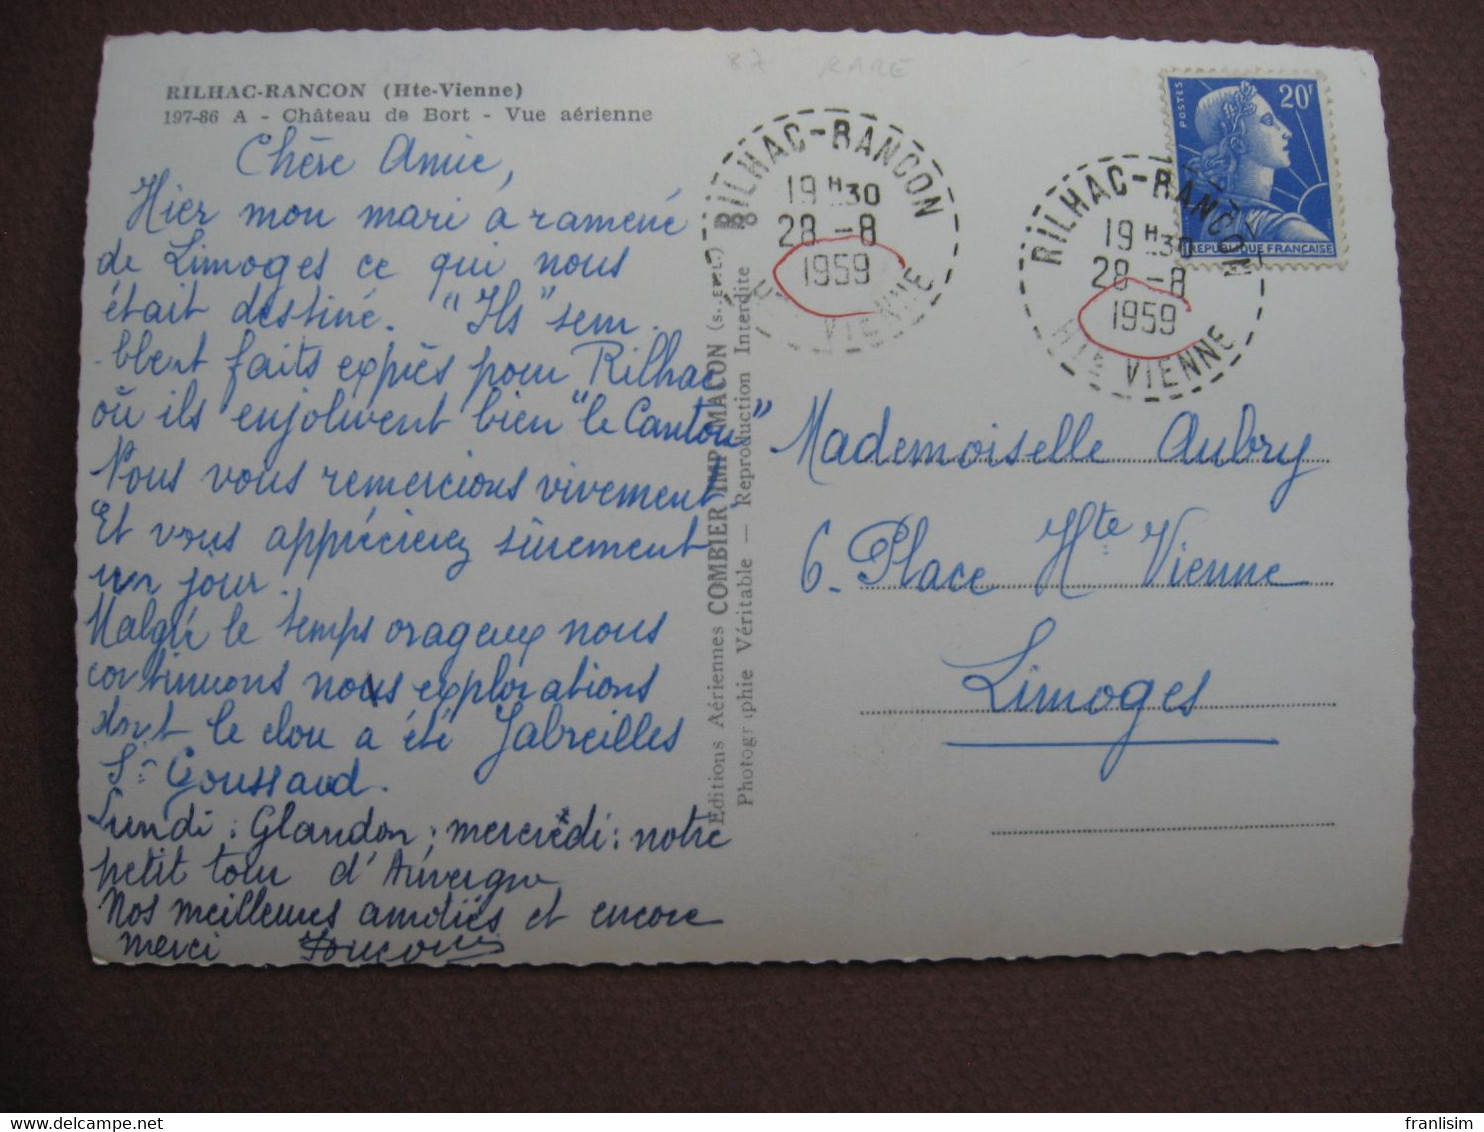 RILHAC-RANCON (Hte-Vienne)
197-86 A - Château de Bort - Vue aérienne
Chère Amie,
Hier mon mari a ramené
de Limoges ce qui nous
était destiné. "Ils" sem-
blent faits exprès pour Rilhac
où ils enjolivent bien "le Cantou"
Nous vous remercions vivement,
Et vous apprécierez sûrement
un jour.
Malgré le temps orageux nous
continuons nos explorations
dont le clou a été Jabreilles
St Goussaud.
Lundi : Glandon ; mercredi : notre
petit tour d'Auvergne
Nos meilleures amitiés et encore
merci
Editions Aériennes COMBIER IMP. MACON (S.-et-L.)
Photographie Véritable — Reproduction Interdite
87 RARE
RILHAC-RANCON
19 H 30
28 -8
1959
Hte VIENNE
RILHAC-RANCON
19 H 30
28 -8
1959
Hte VIENNE
POSTES
20F
REPUBLIQUE FRANCAISE
Mademoiselle Aubry
6. Place Hte Vienne
Limoges
franlisim